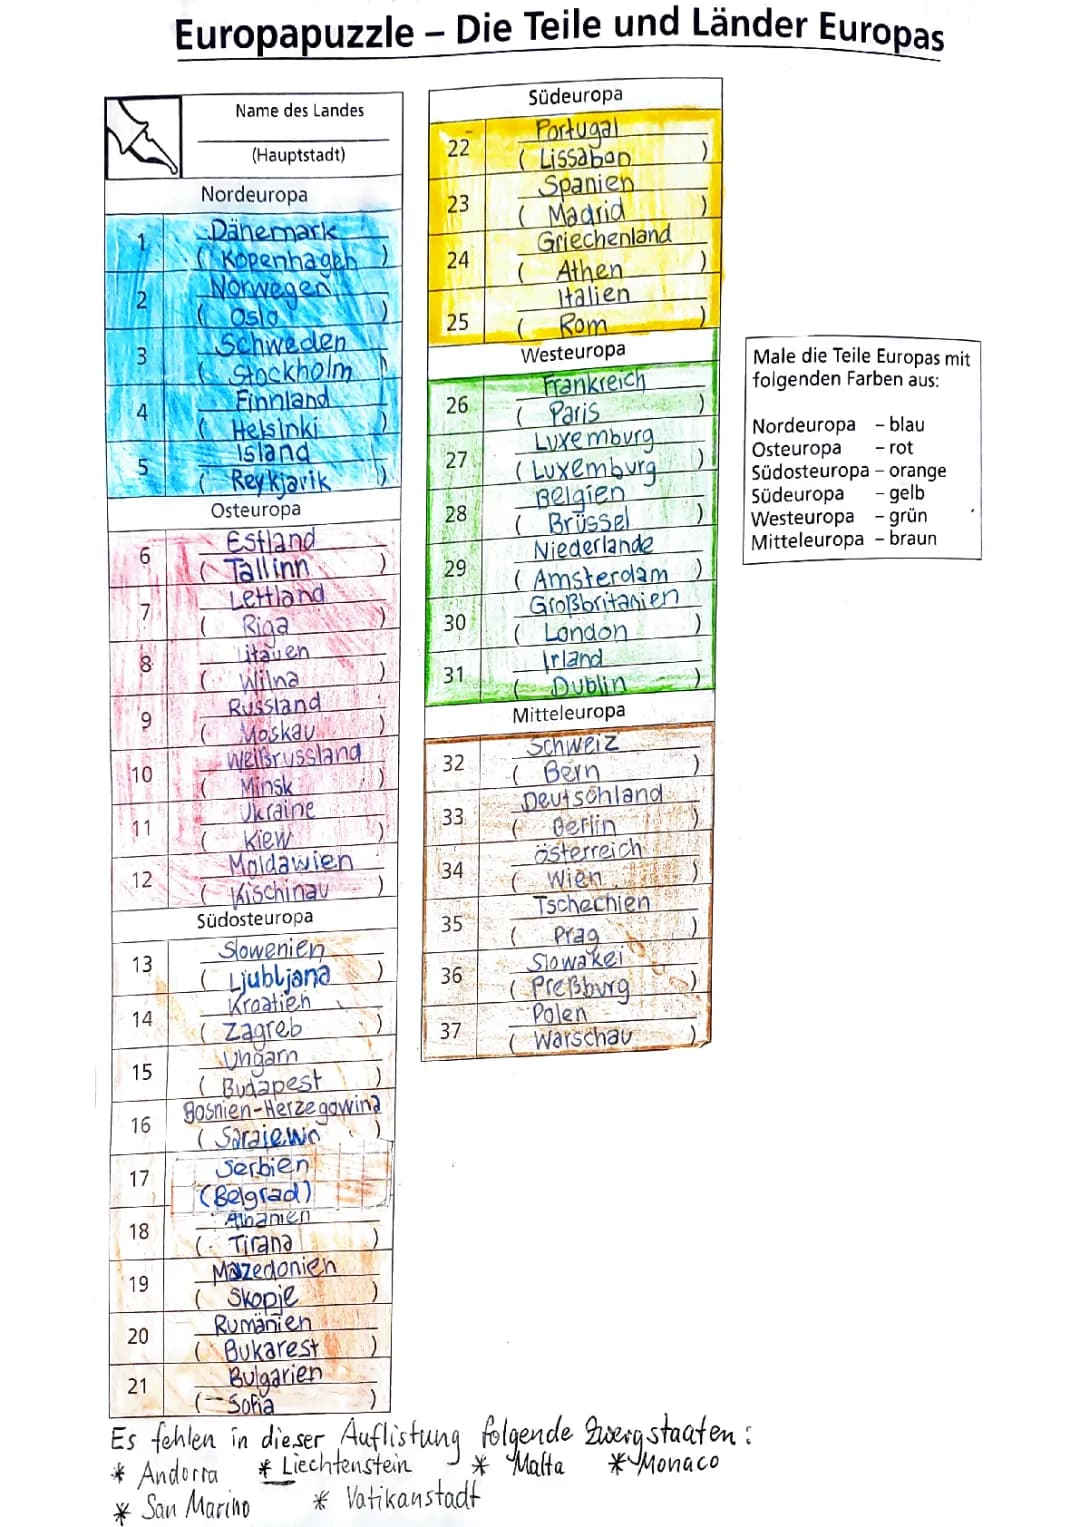 Europapuzzle – Die Teile und Länder Europas
Name des Landes
(Hauptstadt)
Nordeuropa
1 Dänemark
( Kopenhagen )
2 Norwegen
( Oslo )
3 Schweden
( Stockholm )
4 Finnland
( Helsinki )
5 Island
( Reykjavik )
Osteuropa
6 Estland
( Tallinn )
7 Lettland
( Riga )
8 Litauen
( Wilna )
9 Russland
( Moskau )
10 Weißrussland
( Minsk )
11 Ukraine
( Kiew )
12 Moldawien
( Kischinau )
Südosteuropa
13 Slowenien
( Ljubljana )
14 Kroatien
( Zagreb )
15 Ungarn
( Budapest )
16 Bosnien-Herzegowina
( Sarajewo )
17 Serbien
(Belgrad)
18 Albanien
( Tirana )
19 Mazedonien
( Skopje )
20 Rumänien
( Bukarest )
21 Bulgarien
( Sofia )
Südeuropa
22 Portugal
( Lissabon )
23 Spanien
( Madrid )
24 Griechenland
( Athen )
25 Italien
( Rom )
Westeuropa
26 Frankreich
( Paris )
27 Luxemburg
( Luxemburg )
28 Belgien
( Brüssel )
29 Niederlande
( Amsterdam )
30 Großbritanien
( London )
31 Irland
( Dublin )
Mitteleuropa
32 Schweiz
( Bern )
33 Deutschland
( Berlin )
34 Österreich
( Wien )
35 Tschechien
( Prag )
36 Slowakei
( Preßburg )
37 Polen
( Warschau )
Male die Teile Europas mit
folgenden Farben aus:
Nordeuropa – blau
Osteuropa – rot
Südosteuropa – orange
Südeuropa – gelb
Westeuropa – grün
Mitteleuropa – braun
Es fehlen in dieser Auflistung folgende Zwergstaaten:
* Andorra * Liechtenstein * Malta * Monaco
* San Marino * Vatikanstadt